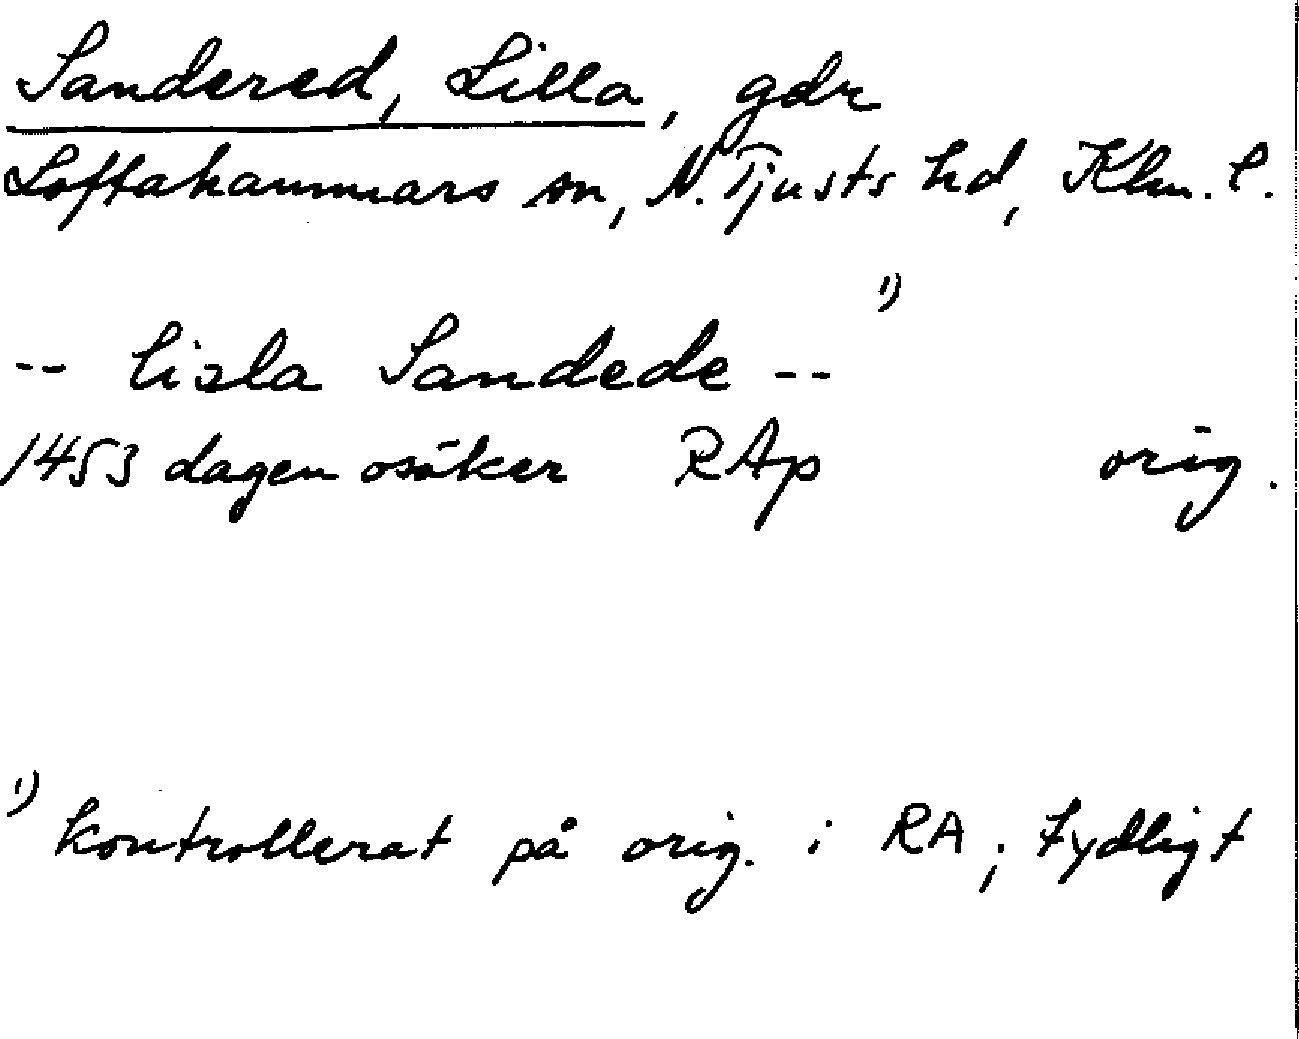 Sandered, Lilla, gdr
Loftahammars sn, N. Tjusts hd, Klm. l.
-- lisla Sandede -- 1)
1453 dagen osäker RAp orig.
1) kontrollerat på orig. i RA; tydligt